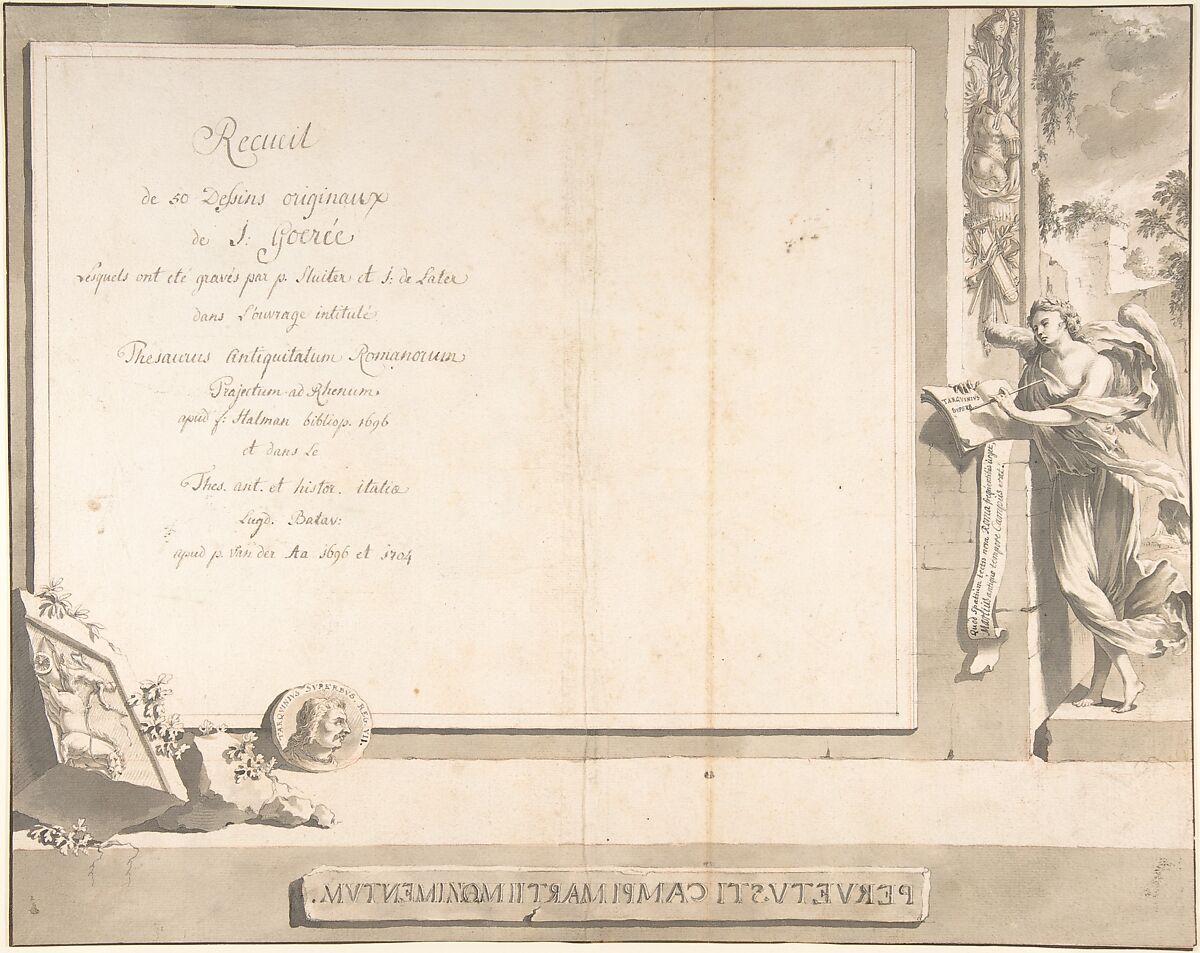 Recueil
de 50 Dessins originaux
de J: Goerée
Lesquels ont eté gravés par p. Sluiter et J: de Later
dans L'ouvrage intitulé
Thesaurus Antiquitatum Romanorum
Trajectum ad Rhenum
apud f: Halman bibliop. 1696
et dans Le
Thes. ant. et histor. italiæ
Lugd. Batav:
apud p. Van der Aa 1696 et 1704
TARQUINIUS
SUPERB
Quod Spatium tectis nunc Roma frequentibus urget,
Martius antiquo tempore Campus erat.
TARQUINIUS SUPERBUS. REG. VII.
PERVETUSTI CAMPI MARTII MONIMENTUM.